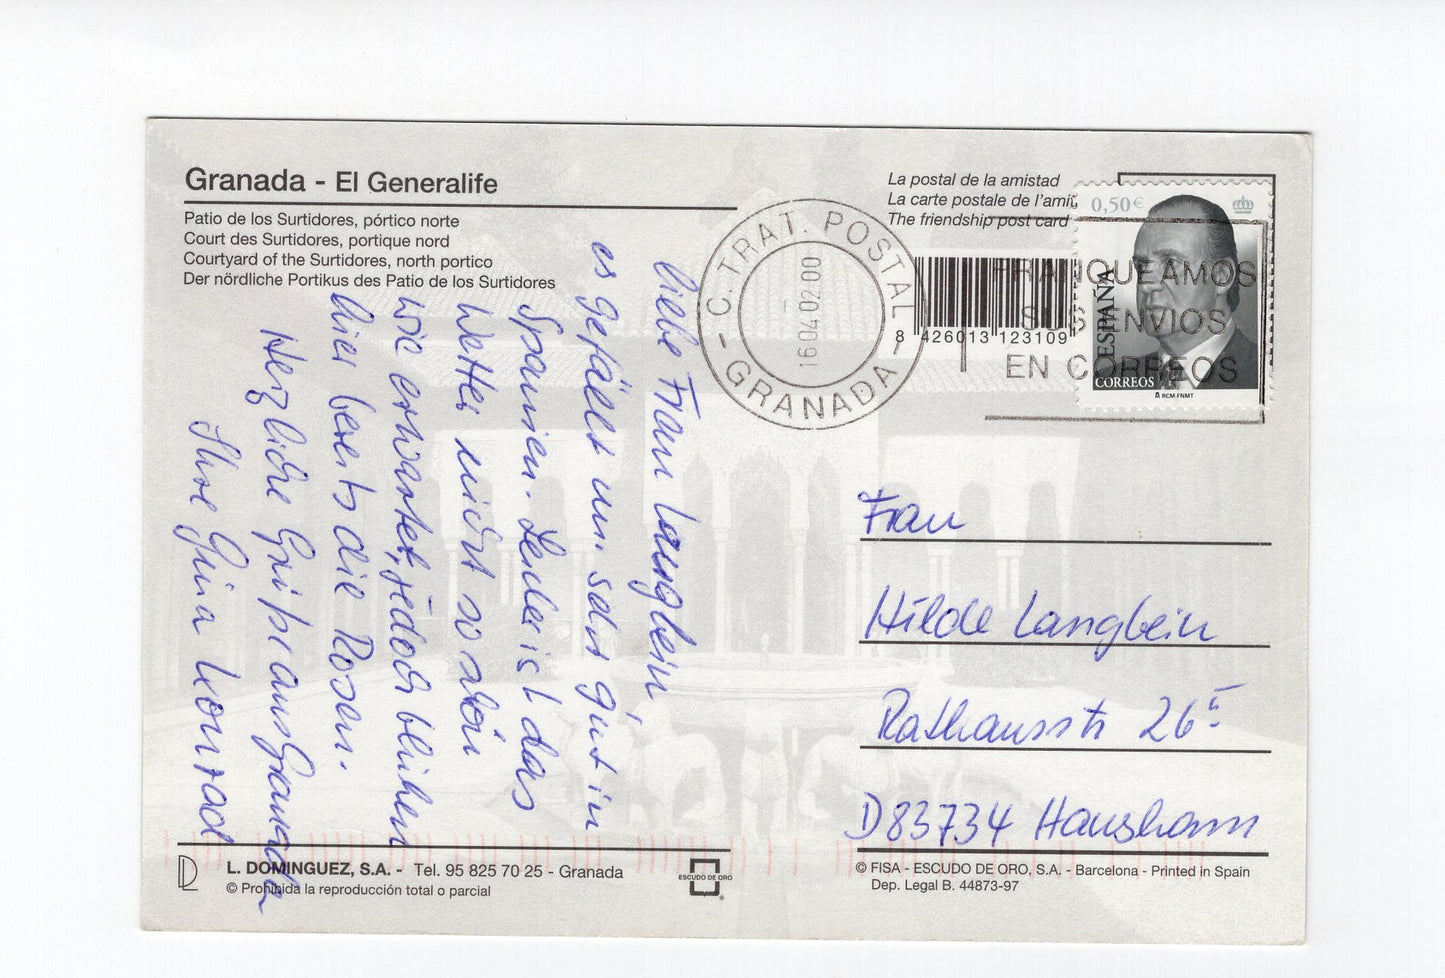 Granada - El Generalife
Patio de los Surtidores, pórtico norte
Court des Surtidores, portique nord
Courtyard of the Surtidores, north portico
Der nördliche Portikus des Patio de los Surtidores
La postal de la amistad
La carte postale de l'amit
The friendship post card
C. TRAT. POSTAL
- GRANADA -
16.04.02 00
8 426013 123109
0,50€
ESPAÑA
CORREOS
RCM-FNMT
FRANQUEAMOS
SUS ENVIOS
EN CORREOS
liebe Frau Langbein
es gefällt mir sehr gut in
Spanien. Leider ist das
Wetter nicht so schön
wie erwartet, jedoch blühen
hier bereits die Rosen.
Herzliche Grüße aus Granada
Ihre Gina Konrad
Frau
Hilde Langbein
Rathausstr 26
D 83734 Hausham
L. DOMINGUEZ, S.A. - Tel. 95 825 70 25 - Granada
© Prohibida la reproducción total o parcial
ESCUDO DE ORO
© FISA - ESCUDO DE ORO, S.A. - Barcelona - Printed in Spain
Dep. Legal B. 44873-97